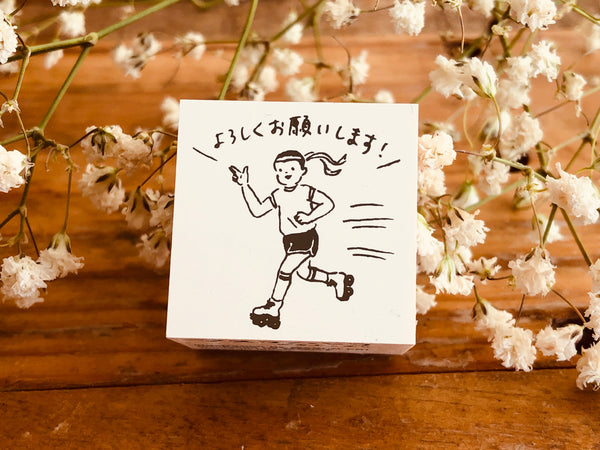 よろしくお願いします!